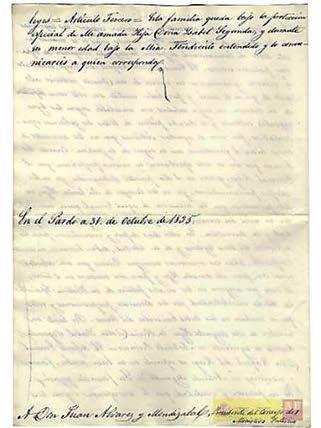 leyes = Artículo Tercero = Esta familia queda bajo la protección
especial de Mi amada Hija Doña Isabel Segunda, y durante
su menor edad bajo la Mia. Tendreislo entendido y lo comu-
nicareis a quien corresponda.
En el Pardo a 31. de Octubre de 1835.
A Don Juan Alvarez y Mendizabal, Presidente del Consejo de